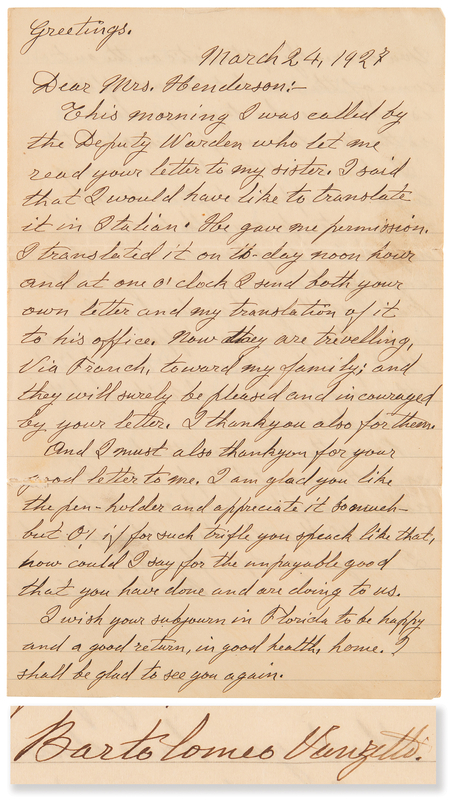 Greetings.
March 24, 1927
Dear Mrs. Henderson:-
This morning I was called by
the Deputy Warden who let me
read your letter to my sister. I said
that I would have like to translate
it in Italian. He gave me permission.
I translated it on to-day noon hour
and at one o'clock I send both your
own letter and my translation of it
to his office. Now they are trivelling,
Via Franch, toward my family; and
they will surely be pleased and incouraged
by your letter. I thank you also for them.
And I must also thank you for your
good letter to me. I am glad you like
the pen-holder and appreciate it so much-
but O! if for such trifle you speack like that,
how could I say for the unpayable good
that you have done and are doing to us.
I wish your subjourn in Florida to be happy
and a good return, in good health, home. I
shall be glad to see you again.
Bartolomeo Vanzetti.